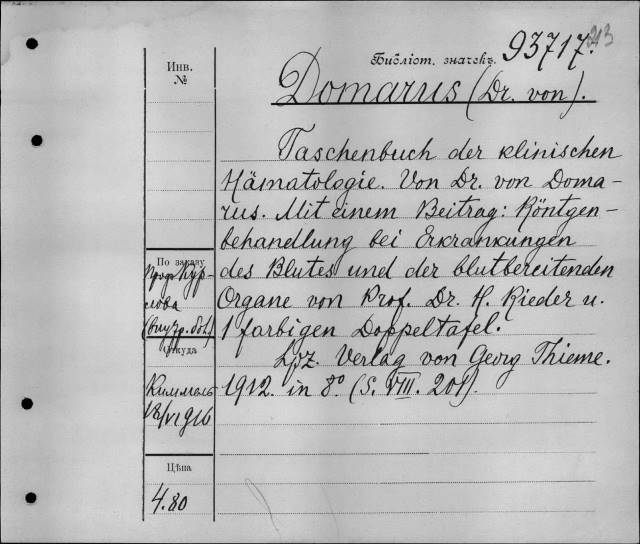 93717.
Библіот. значекъ.
Инв.
№
Domarus (Dr. von).
Taschenbuch der klinischen
Hämatologie. Von Dr. von Doma-
rus. Mit einem Beitrag: Röntgen-
behandlung bei Erkrankungen
des Blutes und der blutbereitenden
Organe von Prof. Dr. H. Rieder u.
1 farbigen Doppeltafel.
Lpz. Verlag von Georg Thieme.
1912. in 8° (S. VIII. 201).
По заказу
проф Кур-
лова
(внутр. бол.)
Откуда
Киммель
18/VI 916
Цѣна
4.80